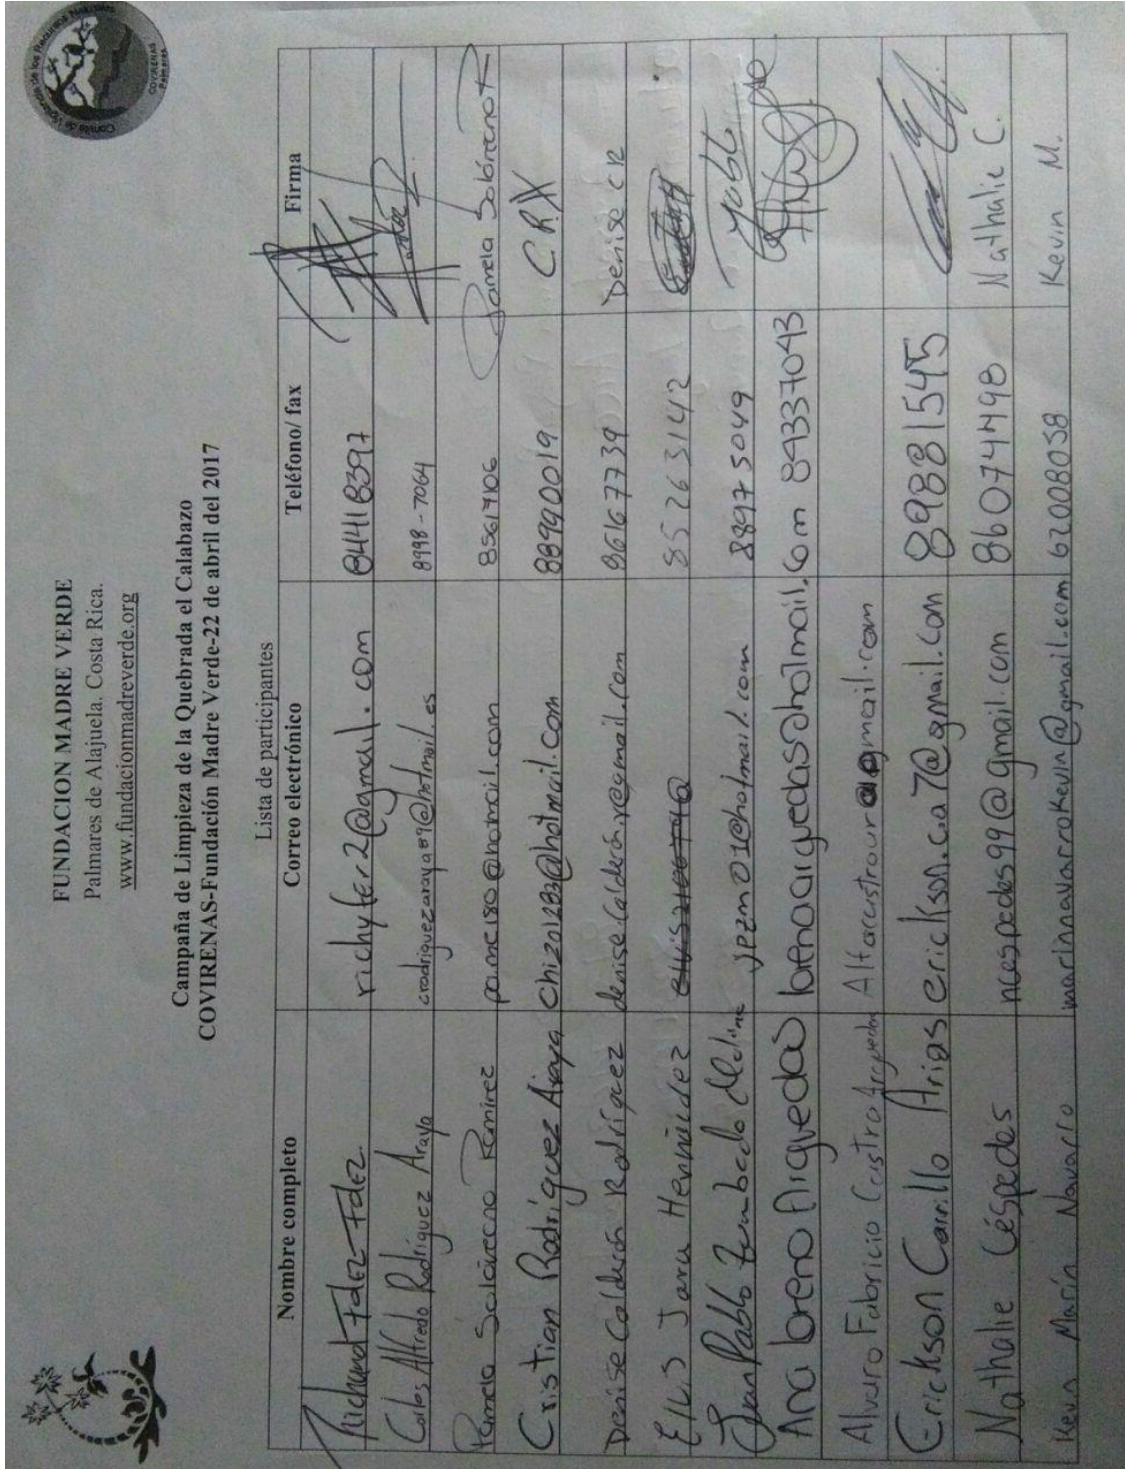 FUNDACION MADRE VERDE
Palmares de Alajuela. Costa Rica.
www.fundacionmadreverde.org
Comité de Vigilancia de los Recursos Naturales
COVIRENAS
Palmares
Campaña de Limpieza de la Quebrada el Calabazo
COVIRENAS-Fundación Madre Verde-22 de abril del 2017
Lista de participantes
Nombre completo Correo electrónico Teléfono/ fax Firma
Richard Fdez Fdez richyfer2@gmail.com 84418397
Carlos Alfredo Rodríguez Araya crodriguezaraya89@hotmail.es 8998-7064
Pamela Solórzano Ramírez 85617106 Pamela Solórzano R
Cristian Rodríguez Araya chizo1283@hotmail.com 88990019 C.R.A
Denise Calderón Rodríguez 86167739 Denise C R
Jara Hernández 85263142
Juan Pablo Zumbado Medina jpzm01@hotmail.com 88975049
Ana Lorena Arguedas 89337043
Alvaro Fabricio Castro Arguedas
Erickson Carrillo Arias erickson.ca7@gmail.com 89881545
Nathalie Céspedes ncespedes99@gmail.com 86074498 Nathalie C.
Kevin Marín Navarro marinnavarrokevin@gmail.com 62008058 Kevin M.